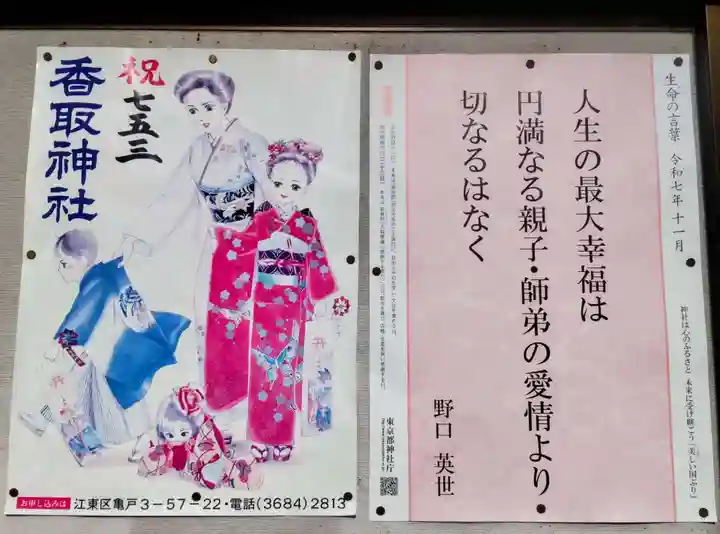 祝
七五三
香取神社
お申し込みは
江東区亀戸3-57-22・電話(3684)2813
生命の言葉 令和七年十一月
人生の最大幸福は
円満なる親子・師弟の愛情より
切なるはなく
野口 英世
神社は心のふるさと 未来に受け継ごう「美しい国ぶり」
東京都神社庁